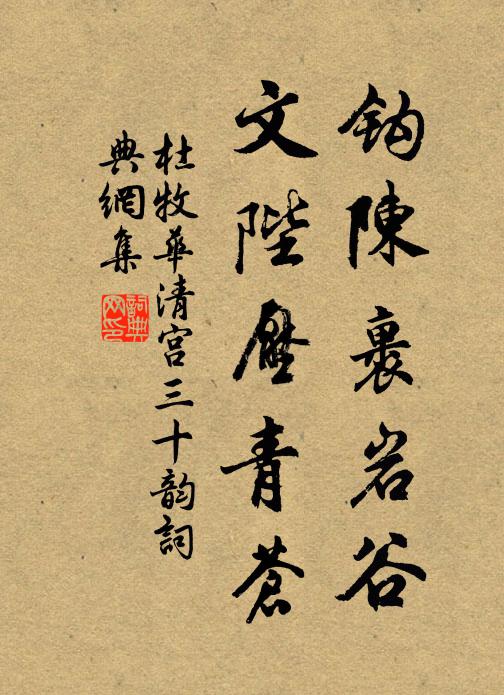 鈎陳裹岩谷
文陛壓青蒼
杜牧華清宮三十韵詞
典網集
詞典
网印